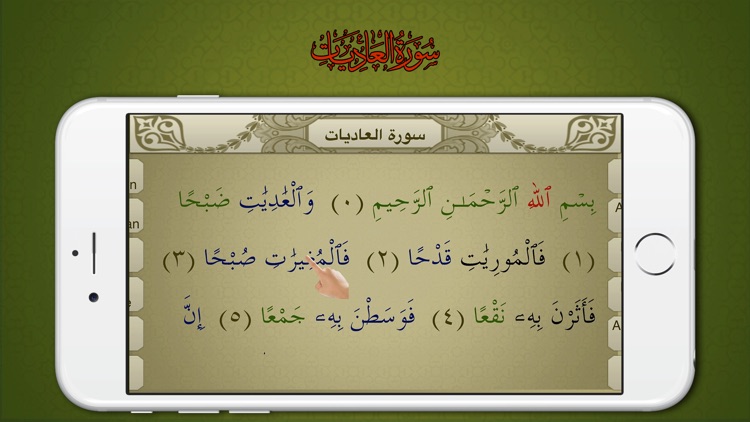 سُورَةُ العَادِيَاتِ
سورة العاديات
بِسْمِ ٱللَّهِ ٱلرَّحْمَـٰنِ ٱلرَّحِيمِ (٠) وَٱلْعَٰدِيَٰتِ ضَبْحًا
(١) فَٱلْمُورِيَٰتِ قَدْحًا (٢) فَٱلْمُغِيرَٰتِ صُبْحًا (٣)
فَأَثَرْنَ بِهِۦ نَقْعًا (٤) فَوَسَطْنَ بِهِۦ جَمْعًا (٥) إِنَّ
n
an
e
A
A